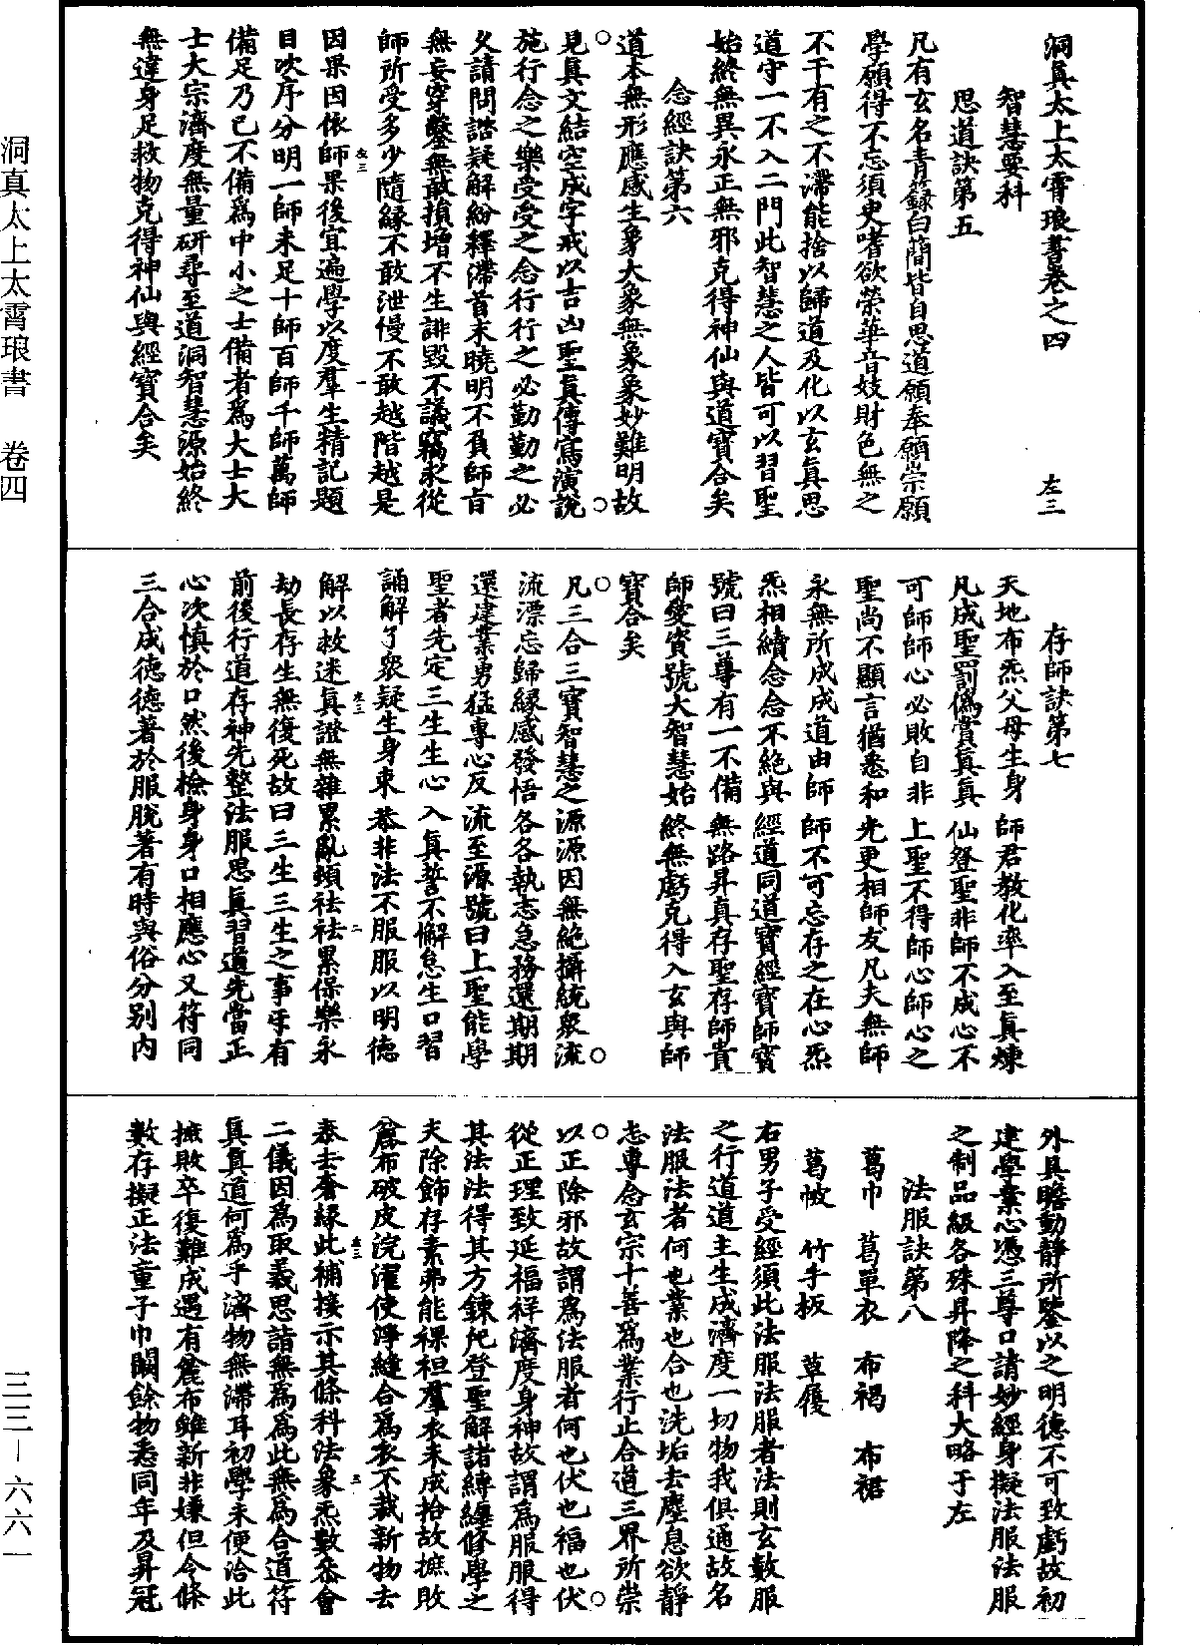 洞真太上太霄琅書卷之四
左三
智慧要科
思道訣第五
凡有玄名青籙白簡皆自思道願奉願崇願
學願得不忘須臾嗜欲榮華音妓財色無之
不干有之不滯能捨以歸道及化以玄真思
道守一不入二門此智慧之人皆可以習聖
始終無異永正無邪克得神仙與道寶合矣
念經訣第六
道本無形應感生象大象無象象妙難明故
見真文結空成字戒以吉凶聖真傳寫演說
施行念之樂受受之念行行之必勤勤之必
久請問諮疑解紛釋滯首末曉明不負師旨
無妄穿鑿無敢損增不生誹毀不議竊求從
師所受多少隨緣不敢泄慢不敢越階越是
左三
一
因果因依師果後宜遍學以度羣生精記題
目次序分明一師未足十師百師千師萬師
備足乃已不備為中小之士備者為大士大
士大宗濟度無量研尋至道洞智慧源始終
無違身足救物克得神仙與經寶合矣
存師訣第七
天地布炁父母生身師君教化率入至真煉
凡成聖罰偽賞真真仙登聖非師不成心不
可師師心必敗自非上聖不得師心師心之
聖尚不顯言猶悉和光更相師友凡夫無師
永無所成成道由師師不可忘存之在心炁
炁相續念念不絕與經道同道寶經寶師寶
號曰三尊有一不備無路昇真存聖存師貴
師愛寶號大智慧始終無虧克得入玄與師
寶合矣
凡三合三寶智慧之源源因無絕攝統衆流
流漂忘歸緣感發悟各各執志急務還期期
還建業勇猛專心反流至源號曰上聖能學
聖者先定三生生心入真誓不懈怠生口習
誦解了衆疑生身束恭非法不服服以明德
左三
二
解以救迷真證無雜累亂頓祛祛累保樂永
劫長存生無復死故曰三生三生之事乎有
前後行道存神先整法服思真習道先當正
心次慎於口然後檢身身口相應心又符同
三合成德德著於服脫著有時與俗分別內
外具瞻動靜所鑒以之明德不可致虧故初
建學業心憑三尊口請妙經身擬法服法服
之制品級各殊昇降之科大略于左
法服訣第八
葛巾 葛單衣 布褐 布裙
葛帔 竹手板 草履
右男子受經須此法服法服者法則玄數服
之行道道主生成濟度一切物我俱通故名
法服法者何也業也合也洗垢去塵息欲靜
志專念玄宗十善為業行止合道三界所崇
以正除邪故謂為法服者何也伏也福也伏
從正理致延福祥濟度身神故謂為服服得
其法法得其方鍊凡登聖解諸縛纏修學之
夫除飾存素弗能裸袒羣衣未成拾故摭敗
麄布破皮浣濯使淨縫合為衣不裁新物去
左三
三
泰去奢緣此補接示其條科法象炁數叅會
二儀因為取義思諧無為為此無為合道符
真真道何為乎濟物無滯耳初學未便洽此
摭敗卒復難成遇有麄布雖新非嫌但令條
數存擬正法童子巾闕餘物悉同年及昇冠
洞真太上太霄琅書 卷四
三三—六六一